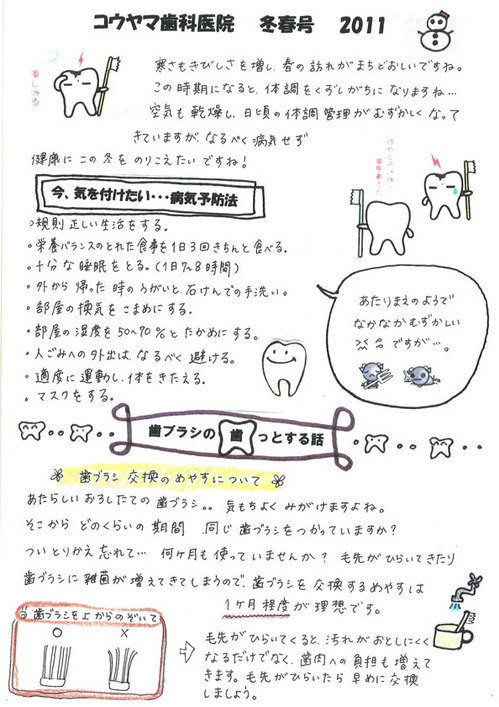 コウヤマ歯科医院 冬春号 2011
寒さもきびしさを増し、春の訪れがまちどおしいですね。
この時期になると、体調をくずしがちになりますね…
空気も乾燥し、日頃の体調管理がむずかしくなって
きていますが、なるべく病気せず
健康にこの冬をのりこえたいですね!
今、気を付けたい・・・病気予防法
・規則正しい生活をする。
・栄養バランスのとれた食事を1日3回きちんと食べる。
・十分な睡眠をとる。(1日7~8時間)
・外から帰った時のうがいと、石けんでの手洗い。
・部屋の換気をこまめにする。
・部屋の湿度を50~70%とたかめにする。
・人ごみへの外出は、なるべく避ける。
・適度に運動し、体をきたえる。
・マスクをする。
あたりまえのようで
なかなかむずかしい
ですが…。
歯ブラシの歯っとする話
歯ブラシ交換のめやすについて
あたらしいおろしたての歯ブラシ。。気もちよくみがけますよね。
そこからどのくらいの期間 同じ歯ブラシをつかっていますか?
ついとりかえ忘れて… 何ヶ月も使っていませんか? 毛先がひらいてきたり
歯ブラシに雑菌が増えてきてしまうので、歯ブラシを交換するめやすは
1ヶ月程度が理想です。
歯ブラシをよからのぞいて
○ ×
毛先がひらいてくると、汚れがおとしにくく
なるだけでなく、歯肉への負担も増えて
きます。毛先がひらいたら早めに交換
しましょう。